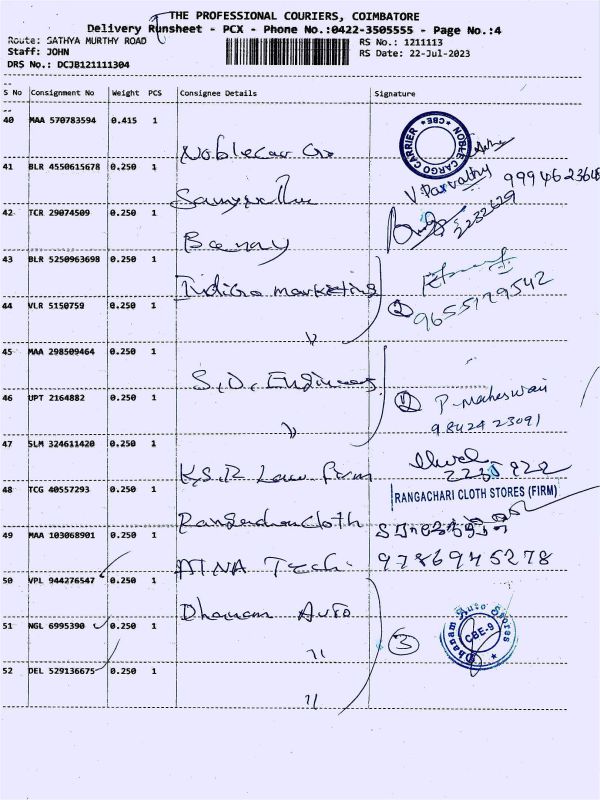 THE PROFESSIONAL COURIERS, COIMBATORE
Delivery Runsheet - PCX - Phone No.:0422-3505555 - Page No.:4
Route: SATHYA MURTHY ROAD
RS No.: 1211113
Staff: JOHN
RS Date: 22-Jul-2023
DRS No.: DCJB121111304
S No Consignment No Weight PCS Consignee Details Signature
--
40 MAA 570783594 0.415 1
Noblecar
NOBLE CARGO CARRIER * CBE *
41 BLR 4550615678 0.250 1
V. Parvathy 9994623648
42 TCR 29074509 0.250 1
2232629
43 BLR 5250963698 0.250 1
Indigo marketing
2 9655179542
44 VLR 5150759 0.250 1
"
45 MAA 298509464 0.250 1
S.D. Engineers
46 UPT 2164882 0.250 1
P. Maheswari
9842423091
"
47 SLM 324611420 0.250 1
K.S.R Law firm
48 TCG 40557293 0.250 1
RANGACHARI CLOTH STORES (FIRM)
Rangachari Cloth
49 MAA 103068901 0.250 1
MNA Tech.
9786945278
50 VPL 944276547 0.250 1
Dhanam Auto
51 NGL 6995390 0.250 1
"
3
Dhanam Auto Stores
CBE-9
52 DEL 529136675 0.250 1
"